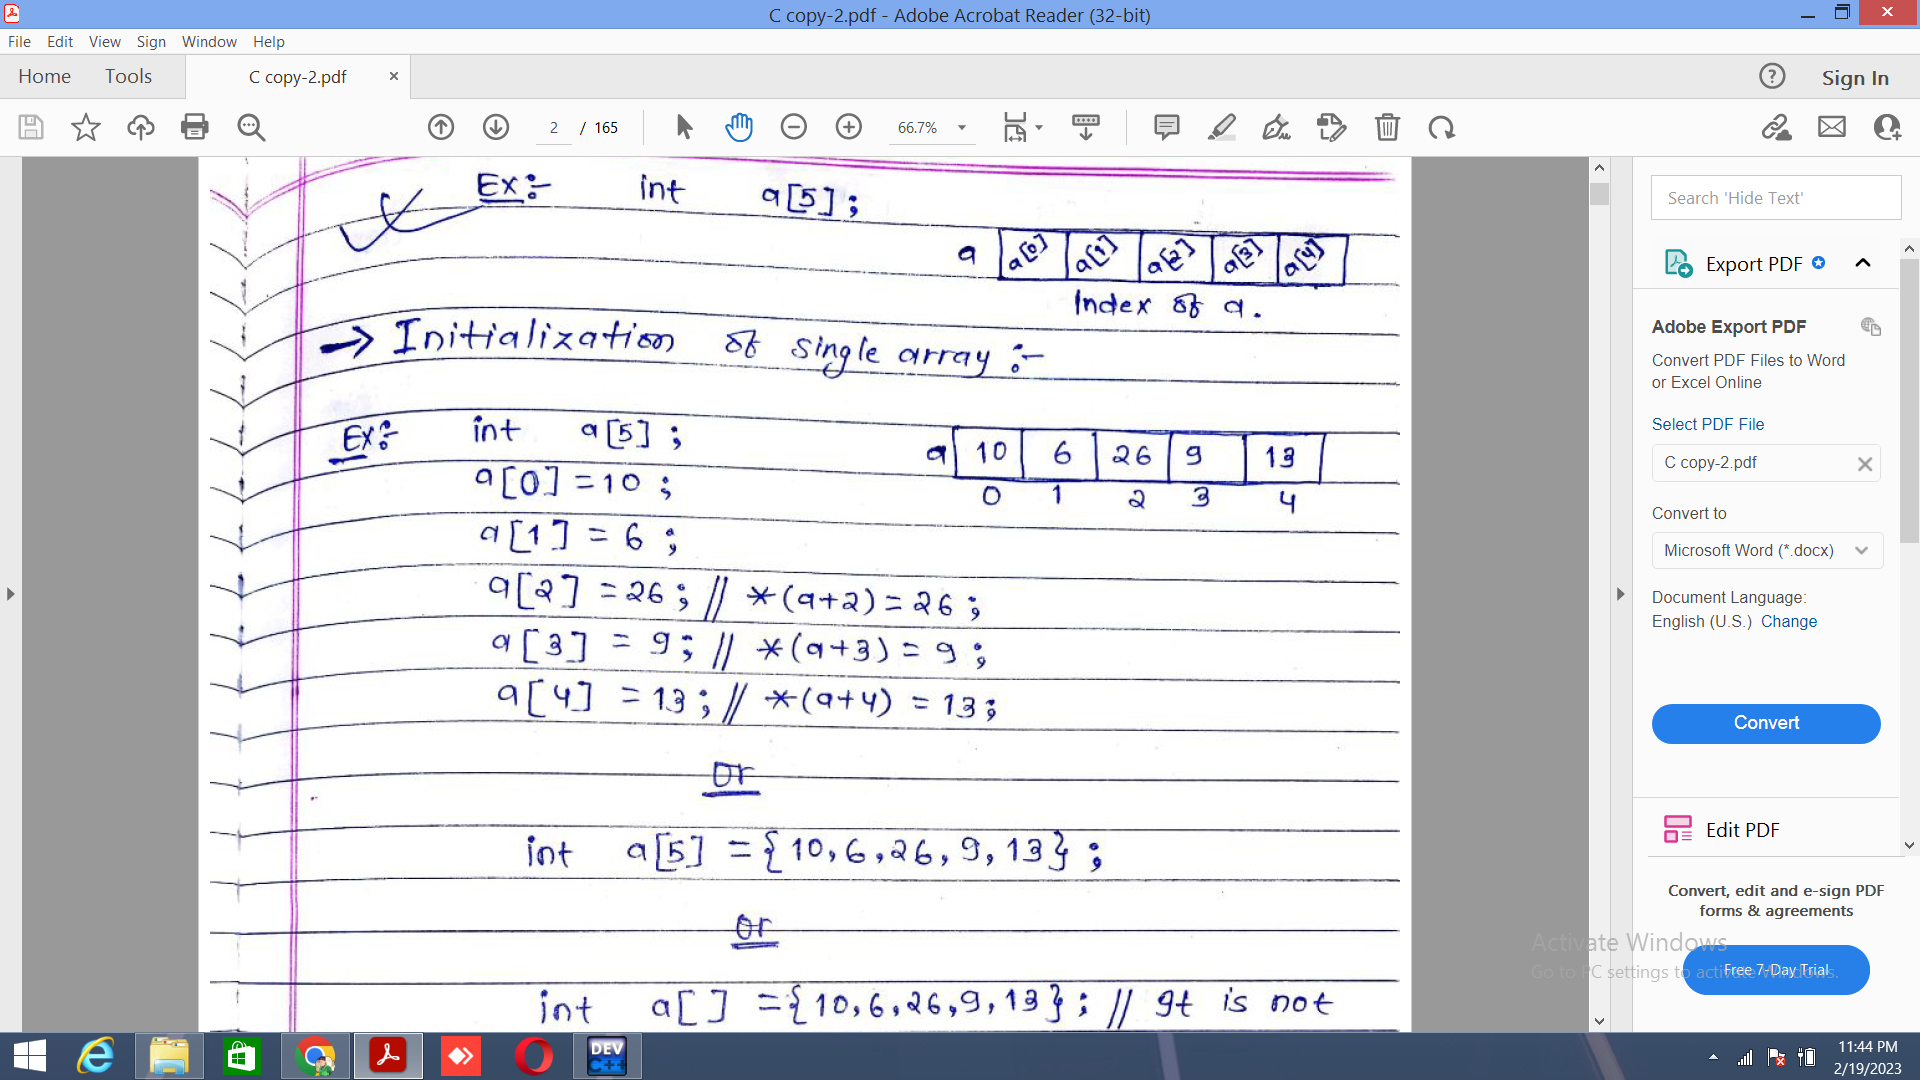 C copy-2.pdf - Adobe Acrobat Reader (32-bit)
File Edit View Sign Window Help
Home Tools C copy-2.pdf × Sign In
2 / 165 66.7%
Ex:- int a[5];
a a[0] a[1] a[2] a[3] a[4]
Index of a.
→ Initialization of single array :-
Ex:- int a[5];
a 10 6 26 9 13
0 1 2 3 4
a[0] = 10;
a[1] = 6;
a[2] = 26; // *(a+2) = 26;
a[3] = 9; // *(a+3) = 9;
a[4] = 13; // *(a+4) = 13;
Or
int a[5] = {10,6,26,9,13};
Or
int a[ ] = {10,6,26,9,13}; // It is not
Search 'Hide Text'
Export PDF
Adobe Export PDF
Convert PDF Files to Word
or Excel Online
Select PDF File
C copy-2.pdf
Convert to
Microsoft Word (*.docx)
Document Language:
English (U.S.) Change
Convert
Edit PDF
Convert, edit and e-sign PDF
forms & agreements
Free 7-Day Trial
Activate Windows
Go to PC settings to activate Windows.
DEV
C++
11:44 PM
2/19/2023